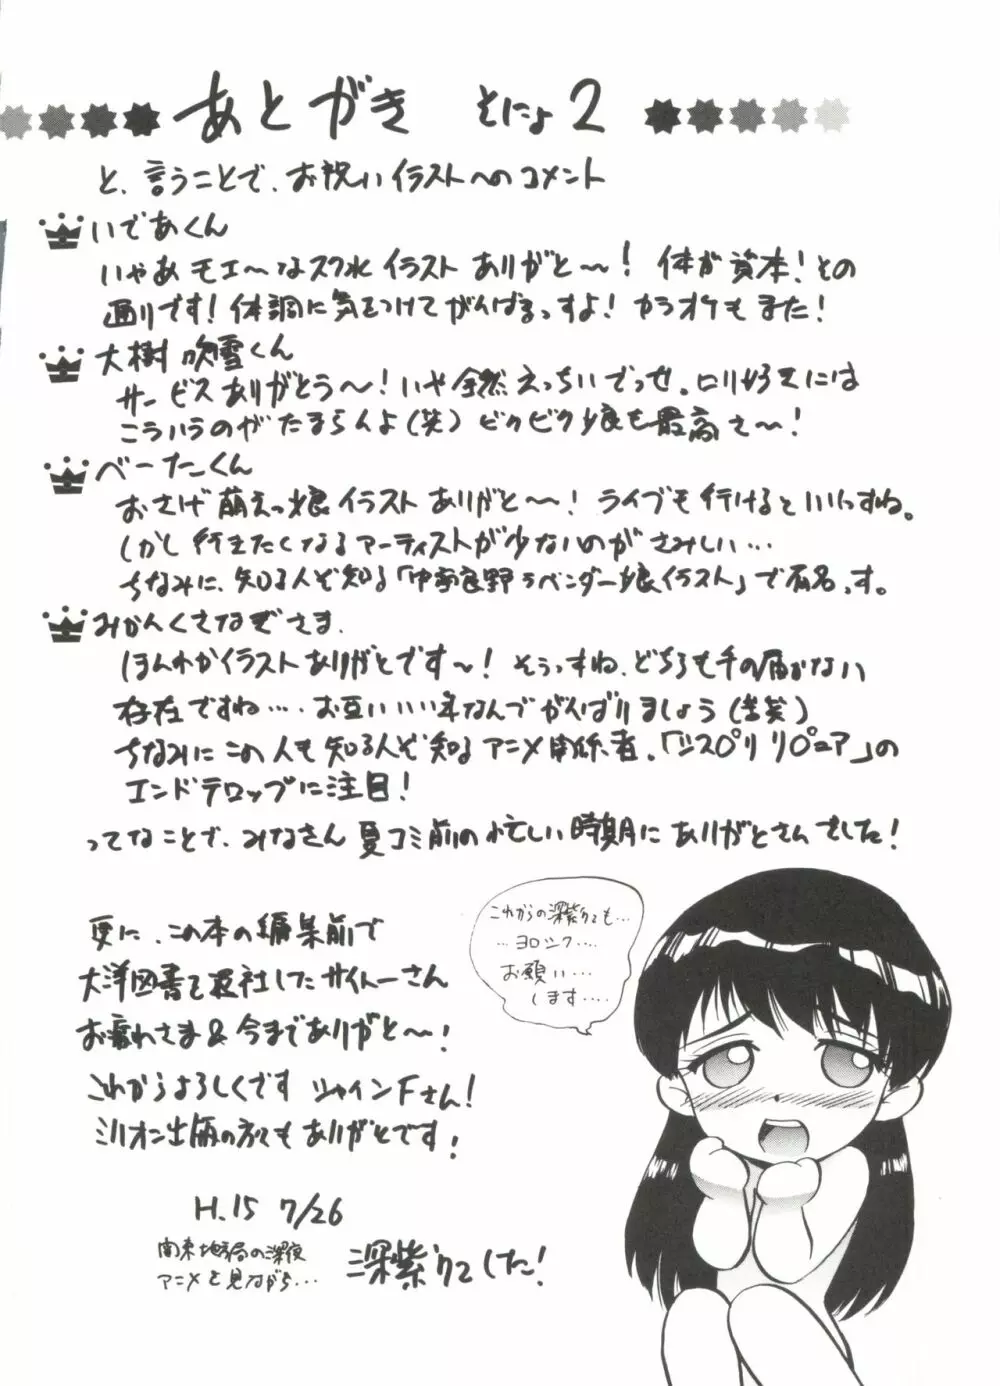 あとがき そにょ2
と、言うことで、お祝いイラストへのコメント
いであくん
いやあモエ〜なスク水イラストありがと〜！体が資本！その
通りです！体調に気をつけてがんばるっすよ！カラオケもまた！
大樹吹雪くん
サービスありがとう〜！いや全然えっちいでっせ。ロリ好きには
こういうのがたまらんよ(笑)ビクビク少娘も最高さ〜！
べーたくん
おさげ萌えっ娘イラストありがと〜！ライブも行けるといいっすね。
しかし行きたくなるアーティストが少ないのがさみしい…
ちなみに、知る人ぞ知る「中富良野ラベンダー娘イラスト」で有名っす。
みかんくさなぎさま、
ほんわかイラストありがとです〜！そうっすね、どちらも手の届かない
存在ですね…。お互いいい年なんでがんばりましょう(苦笑)
ちなみにこの人も知る人ぞ知るアニメ関係者。「シスプリリピュア」の
エンドテロップに注目！
ってなことで、みなさん夏コミ前の忙しい時期にありがとさんでした！
更に、この本の編集前で
大洋図書を退社したサイトーさん
お疲れさま&今までありがと〜！
これからよろしくです シャインFさん！
ミリオン出版の方々もありがとです！
H.15 7/26
関東地方局の深夜
アニメを見ながら…
深紫でした！
これからの深紫も…
…ヨロシク…
お願い…
します…